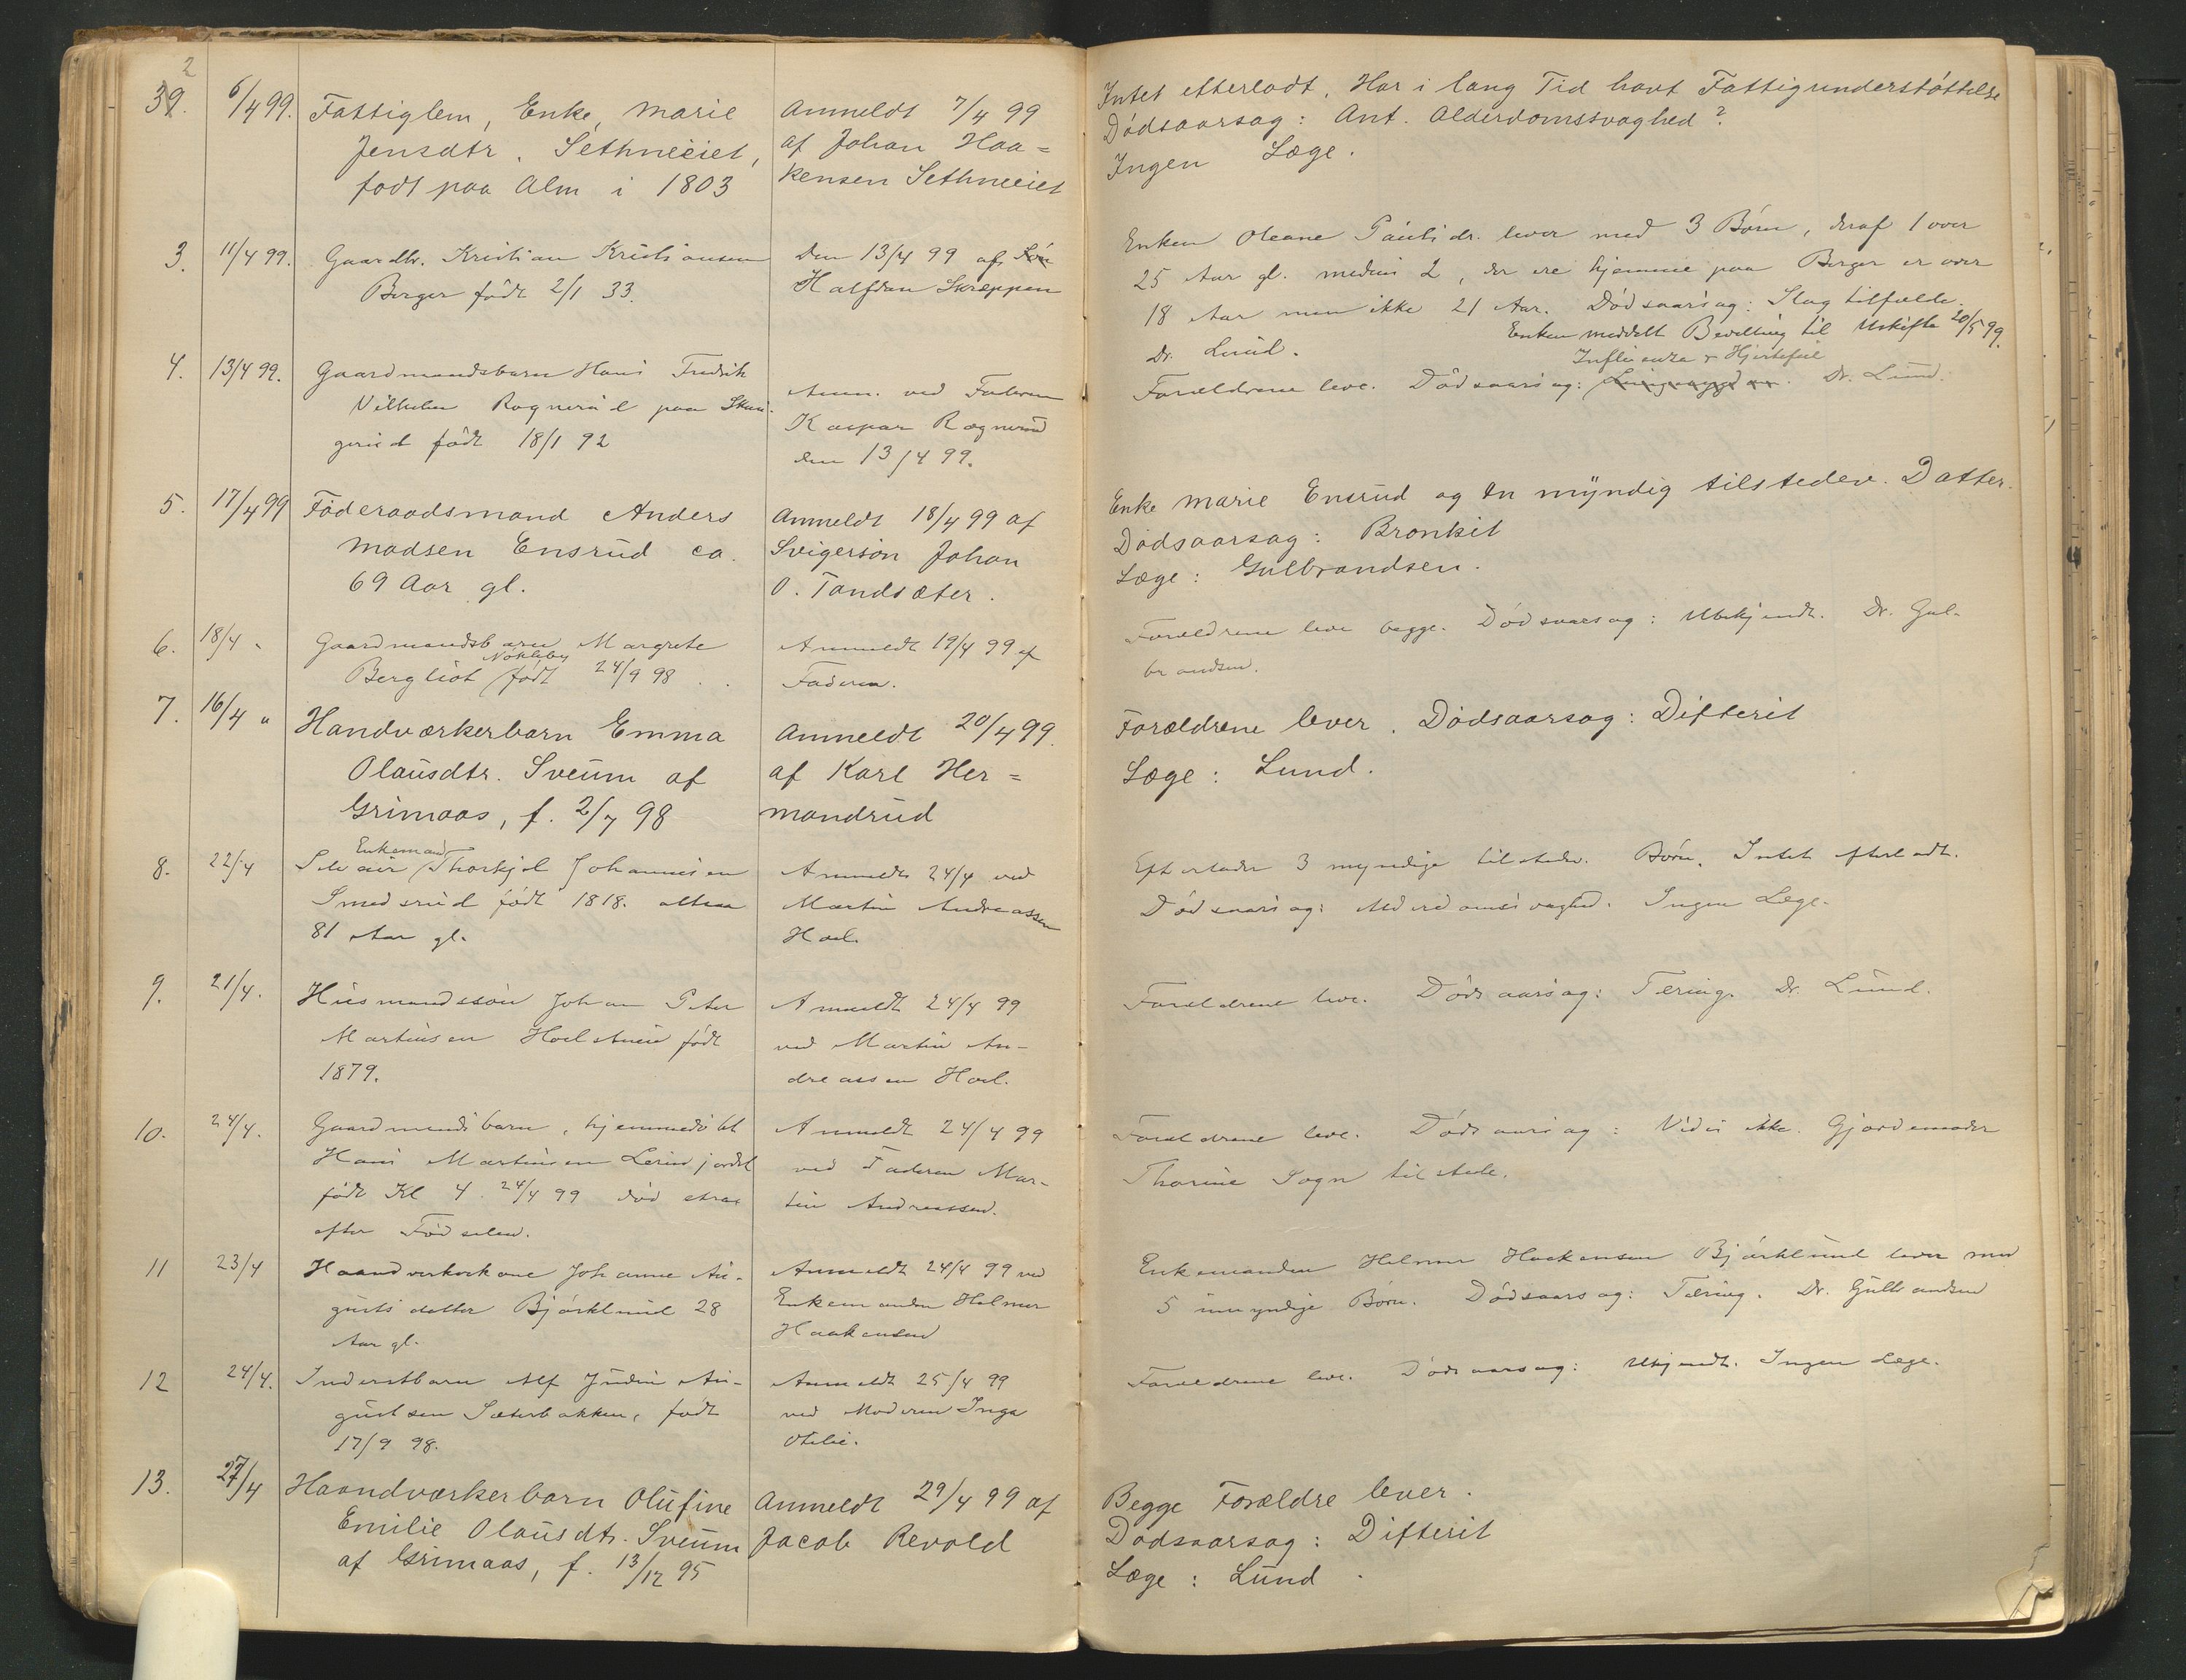 2
39. 6/4 99. Fattiglem, Enke, Marie
Jensdtr. Sethneeiet,
født paa Alm i 1803
Anmeldt 7/4 99
af Johan Haa=
kensen Sethneeiet
Intet efterladt. Har i lang Tid havt Fattigunderstøttelse
Dødsaarsag: Ant. Alderdomssvaghed?
Ingen Læge.
3. 11/4 99. Gaardbr. Kristian Kristiansen
Berger født 2/1 33.
Den 13/4 99 af
Halfdan Skreppen
Enken Oleane Paulsdr. lever med 3 Børn, deraf 1 over
25 Aar gl. medens 2, der ere hjemme paa Berger er over
18 Aar men ikke 21 Aar. Dødsaarsag: Slagtilfælde.
Enken meddelt Bevilling til Uskifte 20/5 99.
Dr. Lund.
4. 13/4 99. Gaardmandsbarn Hans Fredrik
Vilhelm Rognerud paa
gerud født 18/1 92
Anm. ved Faderen
Kaspar Rognerud
den 13/4 99.
Influenza & Hjertefeil
Forældrene leve. Dødsaarsag: Dr. Lund.
5. 17/4 99 Føderaadsmand Anders
Madsen Ensrud ca.
69 Aar gl.
Anmeldt 18/4 99 af
Svigersøn Johan
O. Tandsæter.
Enke Marie Ensrud og en myndig tilstedev. Datter.
Dødsaarsag: Bronkit
Læge: Gulbrandsen.
6. 18/4 " Gaardmandsbarn Margrete
Nøkleby
Bergliot født 24/9 98
Anmeldt 19/4 99 af
Faderen.
Forældrene leve begge. Dødsaarsag: Ubekjendt. Dr. Gul-
brandsen.
7. 16/4 " Handværkerbarn Emma
Olausdtr. Sveum af
Grimaas, f. 2/7 98
Anmeldt 20/4 99.
af Karl Her=
mandrud
Forældrene lever. Dødsaarsag: Difterit
Læge: Lund.
Enkemand
8. 22/4 Thorkjel Johannesen
Smedsrud født 1818. altsaa
81 Aar gl.
Anmeldt 24/4 ved
Martin Andreassen
Hoel.
Efterlader 3 myndige tilstedev. Børn. Intet efterladt.
Dødsaarsag: Alderdomssvaghed. Ingen Læge.
9. 21/4. Husmandssøn Johan Peter
Martinsen Hoelsteien født
1879.
Anmeldt 24/4 99
ved Martin An-
dreassen Hoel.
Forældrene leve. Dødsaarsag: Tæring. Dr. Lund.
10. 24/4. Gaardmandsbarn, hjemmedøbt
Hans Martinsen
født Kl 4. 24/4 99 død strax
efter Fødselen.
Anmeldt 24/4 99
ved Faderen Mar-
tin Andreassen.
Forældrene leve. Dødsaarsag: Vides ikke. Gjordemoder
Thorine Sogn tilstede.
11 23/4 Haandverkerkone Johanne Au-
gustsdatter Bjørklund 28
Aar gl.
Anmeldt 24/4 99 ved
Enkemanden Helmer
Haakensen
Enkemanden Helmer Haakensen Bjørklund lever med
5 umyndige Børn. Dødsaarsag: Tæring. Dr. Gulbrandsen
12 24/4. Inderstbarn Alf Judin Au-
gustsen Sæterbakken, født
17/9 98.
Anmeldt 25/4 99
ved Moderen Inga
Otelie.
Forældrene leve. Dødsaarsag: Ukjendt. Ingen Læge.
13. 27/4 Haandværkerbarn Olufine
Emilie Olausdtr. Sveum
af Grimaas, f. 13/12 95
Anmeldt 29/4 99 af
Jacob Revold
Begge Forældre lever.
Dødsaarsag: Difterit
Læge: Lund.